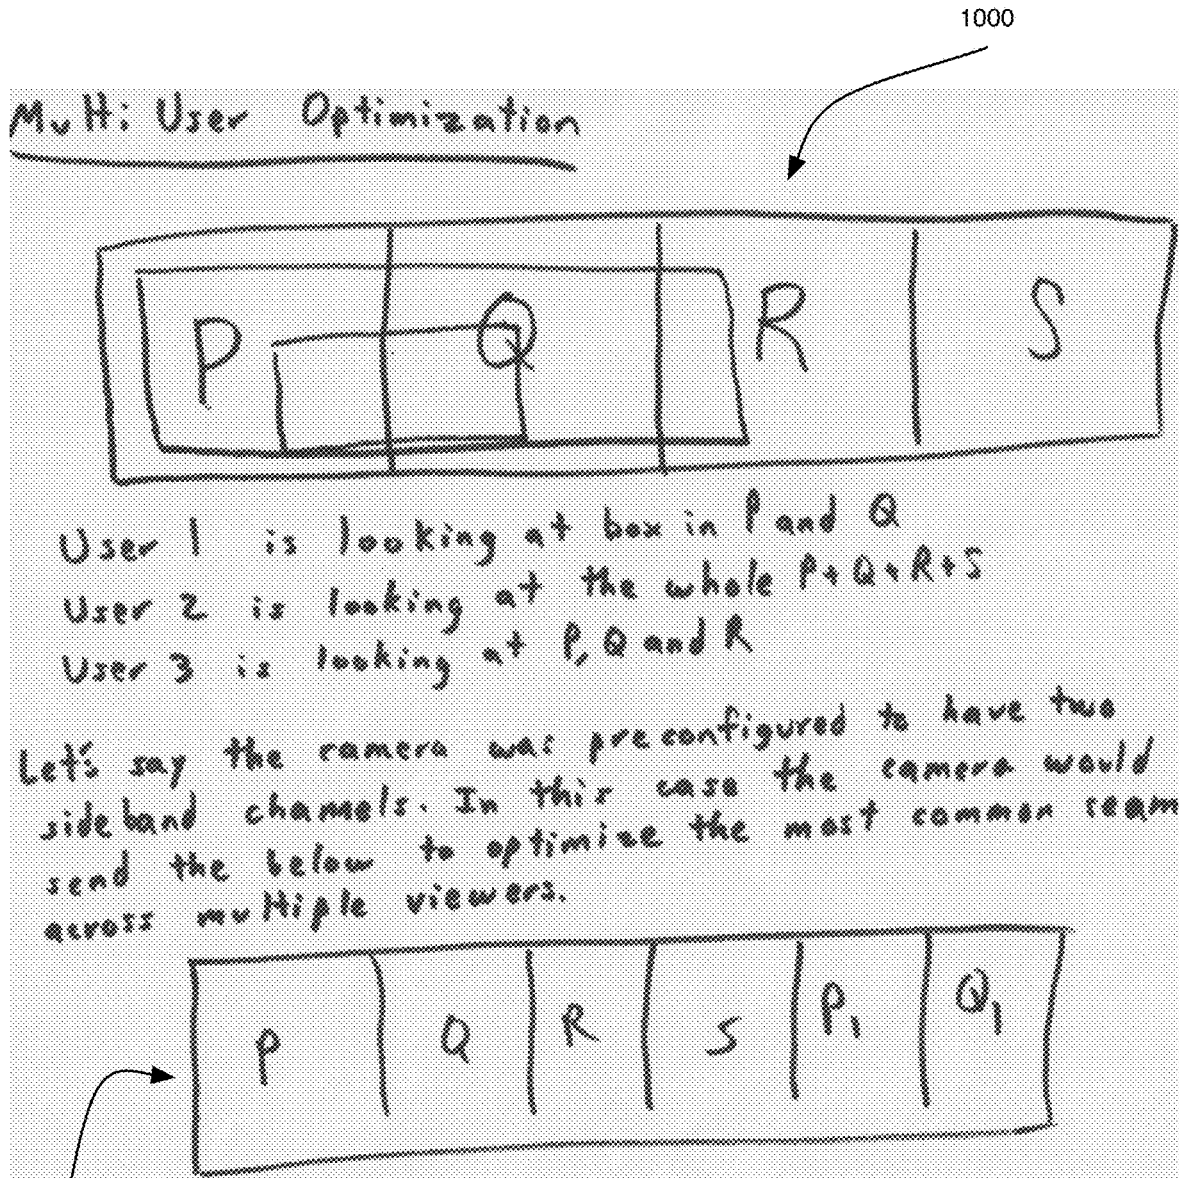 1000
Multi User Optimization
P Q R S
User 1 is looking at box in P and Q
User 2 is looking at the whole P+Q+R+S
User 3 is looking at P, Q and R
Let's say the camera was preconfigured to have two
sideband channels. In this case the camera would
send the below to optimize the most common seam
across multiple viewers.
P Q R S P₁ Q₁